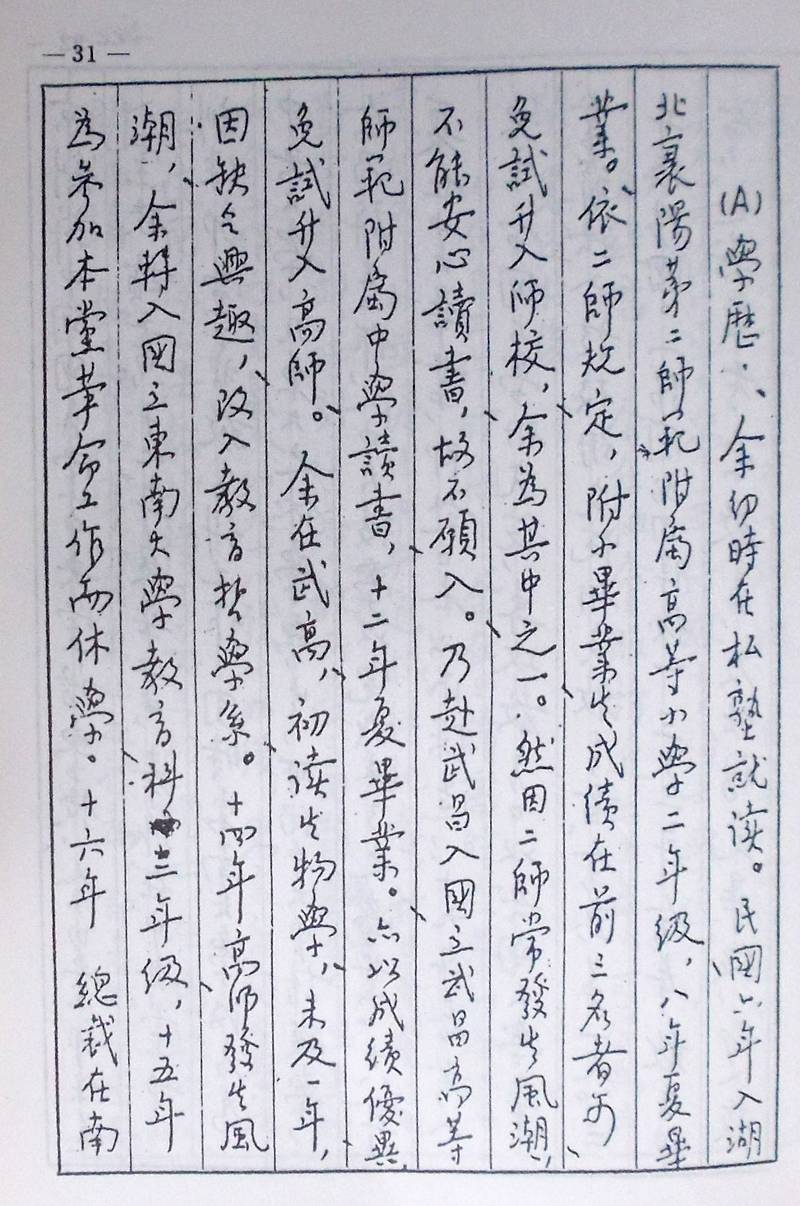 — 31 —
(A)學歷：余幼時在私塾就读。民國六年入湖
北襄陽第二師範附屬高等小學二年級，八年夏畢
業。依二師规定，附小畢業生成績在前三名者可
免試升入師校，余為其中之一。然因二師常發生風潮，
不能安心讀書，故不願入。乃赴武昌入國立武昌高等
師範附屬中學讀書，十二年夏畢業。亦以成績優異，
免試升入高師。余在武高，初读生物學，未及一年，
因缺乏興趣，改入教育哲學系。十四年高师發生風
潮，余轉入國立東南大學教育科三年級，十五年
為參加本黨革命工作而休學。十六年 總裁在南